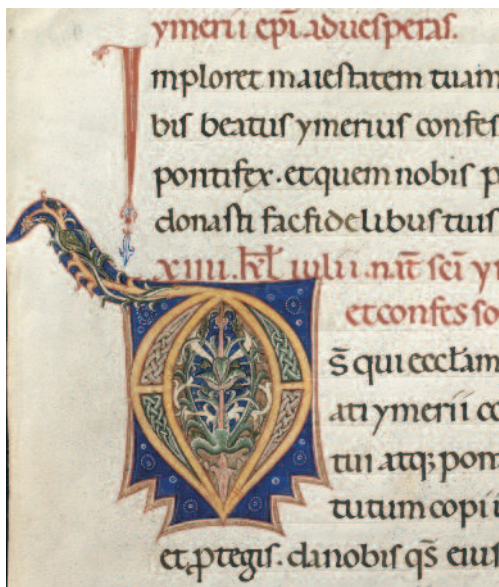 ymerii epi. ad uesperas.
Imploret maiestatem tuam
bis beatus ymerius confes
pontifex. et quem nobis p
donasti fac fidelibus tuis
xiiii. kl iulii. nat sci y
et confes so
DS qui ecclam
ati ymerii co
tui atq; pon
tutum copi
et ptegis. da nobis qs eius